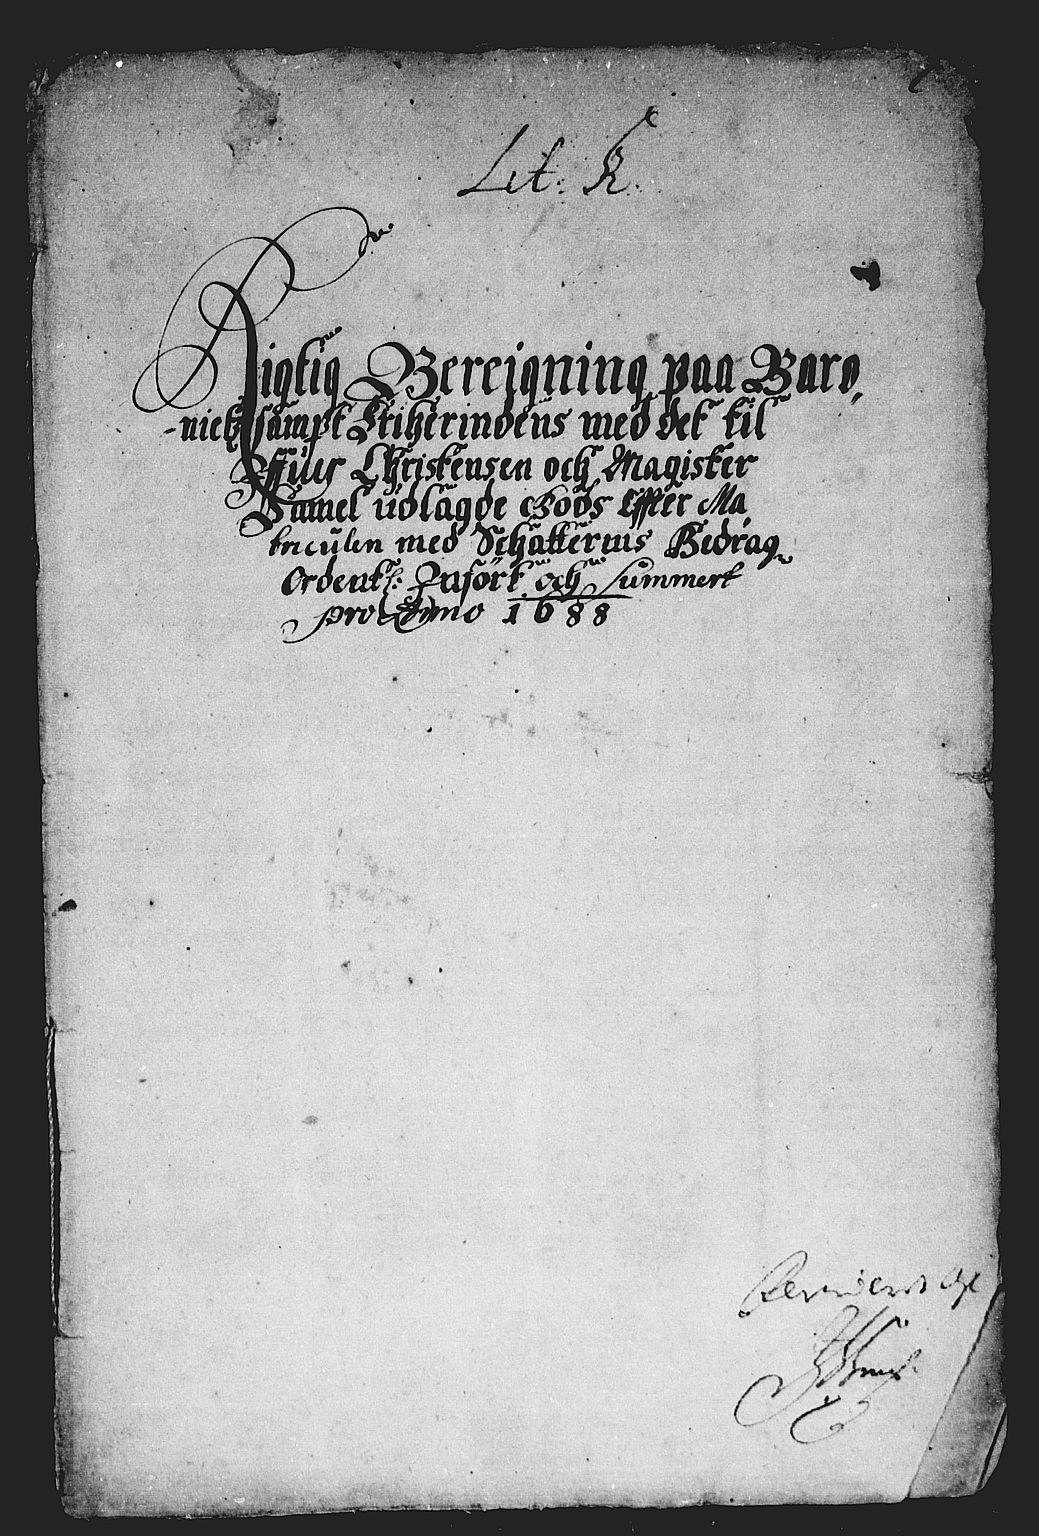 Lit: R.
Rigtig Bereigning paa Baro,
-nietz sampt Friherindens med det til
Iffuer Christensen och Magister
Samel üdlagde Gods Effter Ma
triculen med Schatternis Bedrag
Ordentl: Infört och Summert
pro Anno 1688
Revideret Af